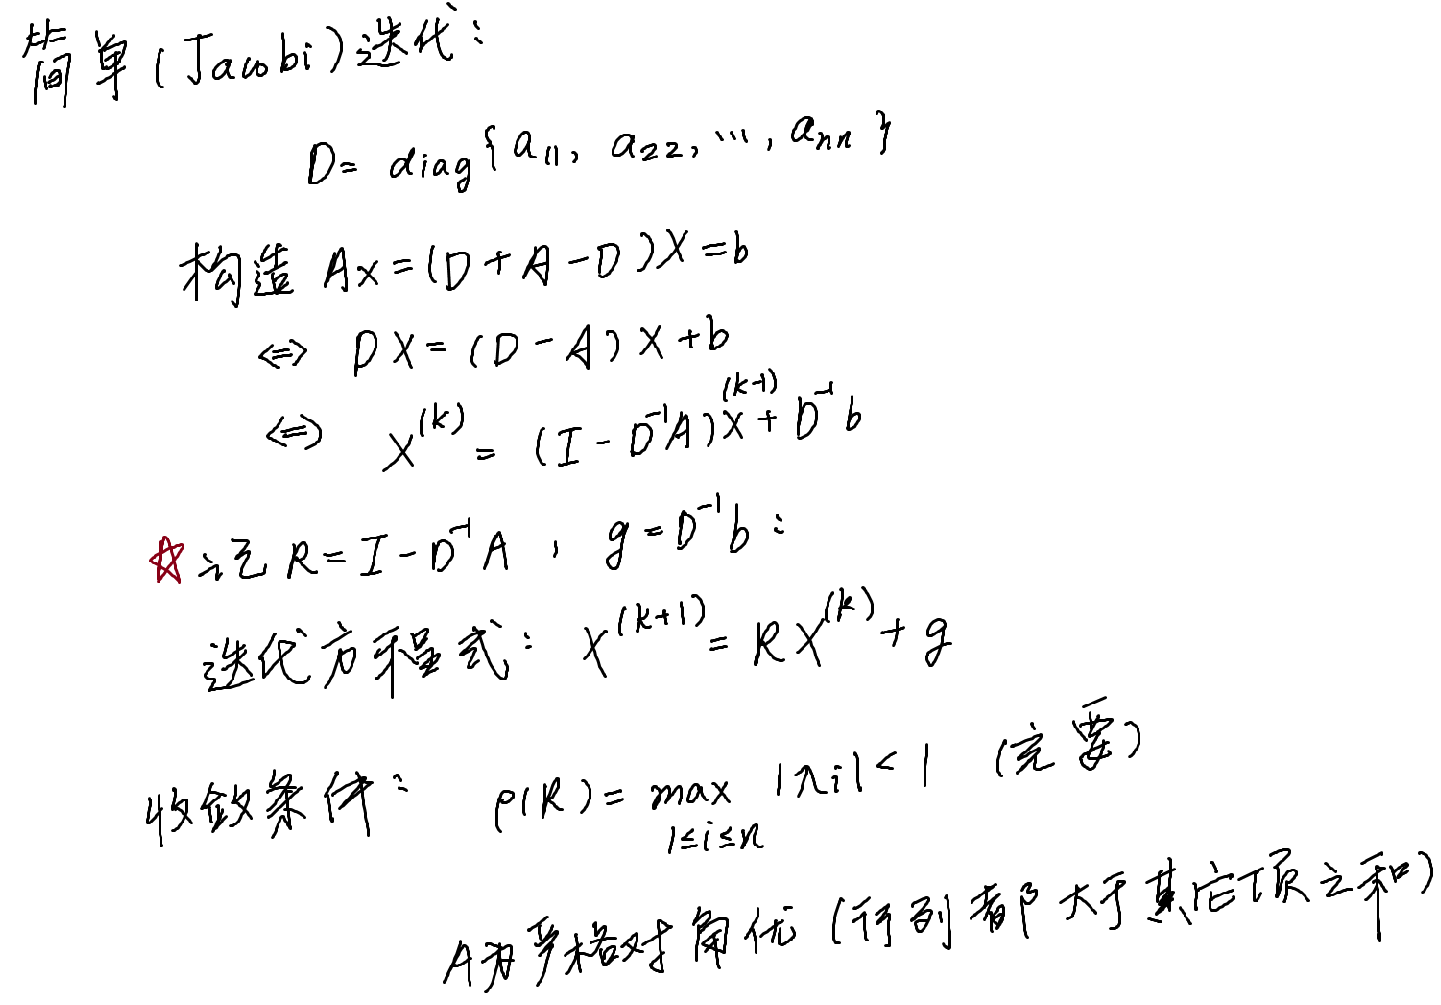 简单(Jacobi)迭代:
D= diag{a₁₁, a₂₂, ..., aₙₙ}
构造 Ax=(D+A-D)X=b
⇔ DX=(D-A)X+b
⇔ X⁽ᵏ⁾=(I-D⁻¹A)X⁽ᵏ⁻¹⁾+D⁻¹b
☆记R=I-D⁻¹A, g=D⁻¹b:
迭代方程式: X⁽ᵏ⁺¹⁾=RX⁽ᵏ⁾+g
收敛条件: ρ(R)=max |λi|<1 (充要)
1≤i≤n
A为严格对角优(行列都大于其它项之和)